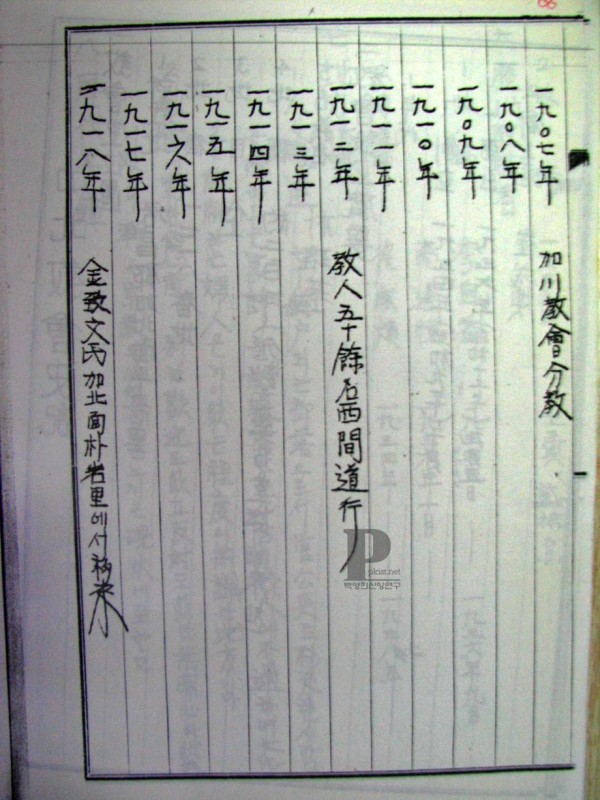 一九〇七年 加川敎會分敎
一九〇八年
一九〇九年
一九一〇年
一九一一年
一九一二年 敎人五十餘名西間道行
一九一三年
一九一四年
一九一五年
一九一六年
一九一七年
一九一八年 金致文氏加北面朴岩里에서移來
P
pkist.net
백영희신앙연구